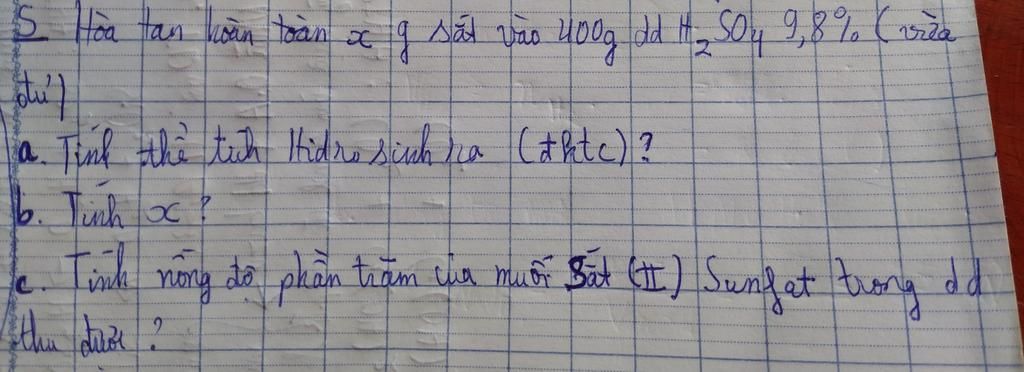 5 Hòa tan hoàn toàn x g sắt vào 400g dd H₂SO₄ 9,8% (vừa
đủ)
a. Tính thể tích Hidro sinh ra (đktc)?
b. Tính x?
c. Tính nồng độ phần trăm của muối Sắt (II) Sunfat trong dd
thu được?